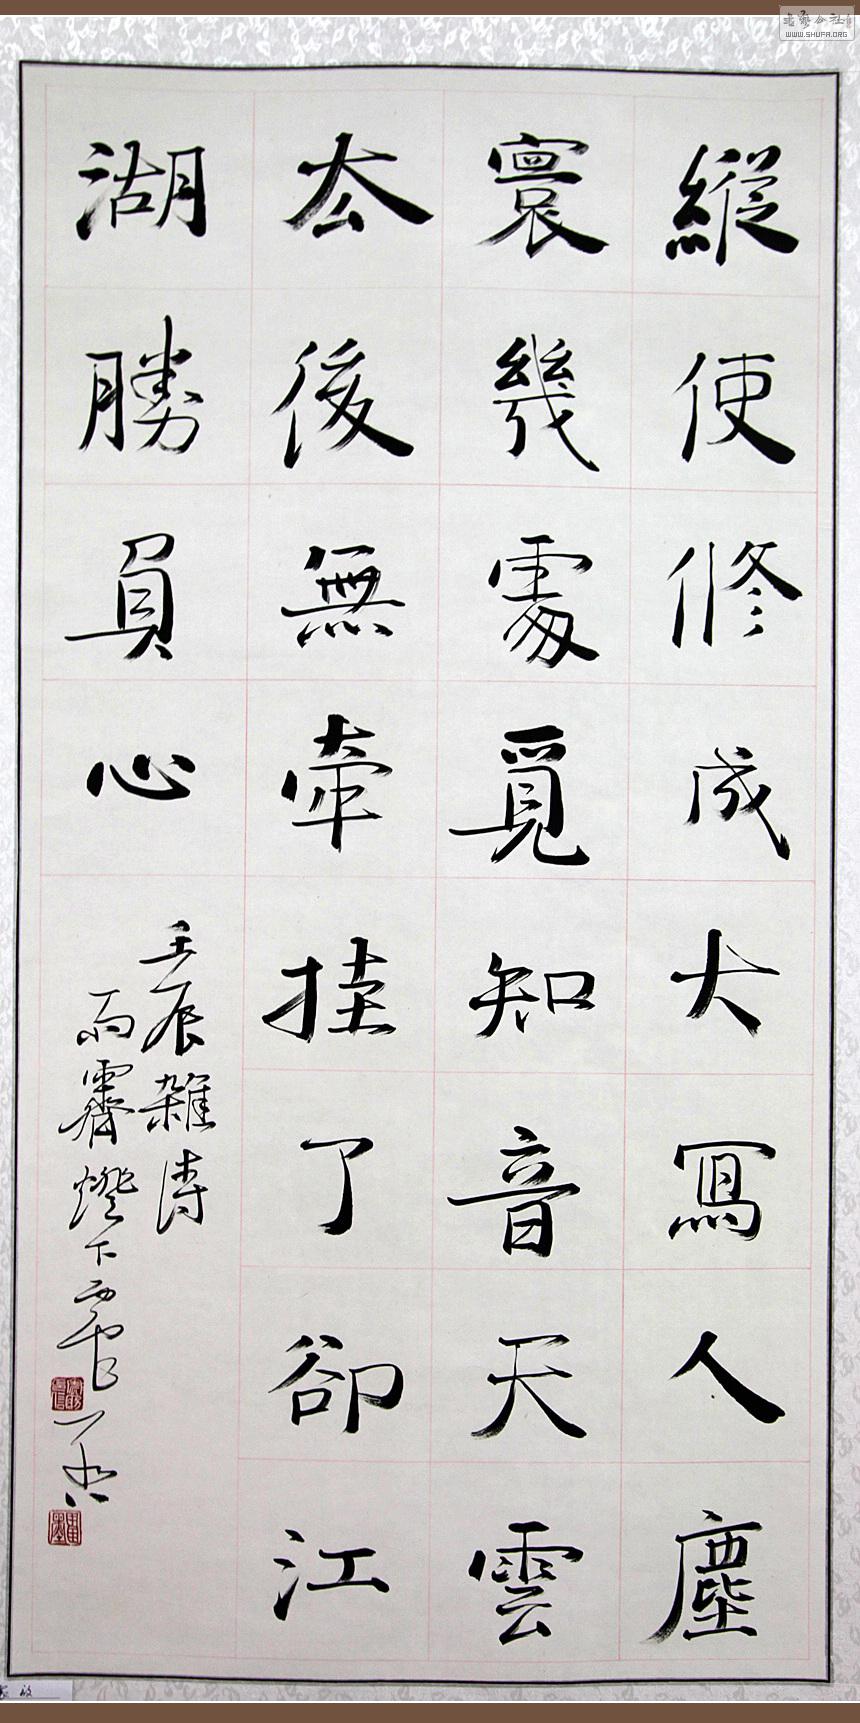 縱使修成大寫人塵
寰幾處覓知音天雲
厺後無牽挂了卻江
湖勝負心
壬辰雜詩
雨霽燈下
书艺公社
WWW.SHUFA.ORG